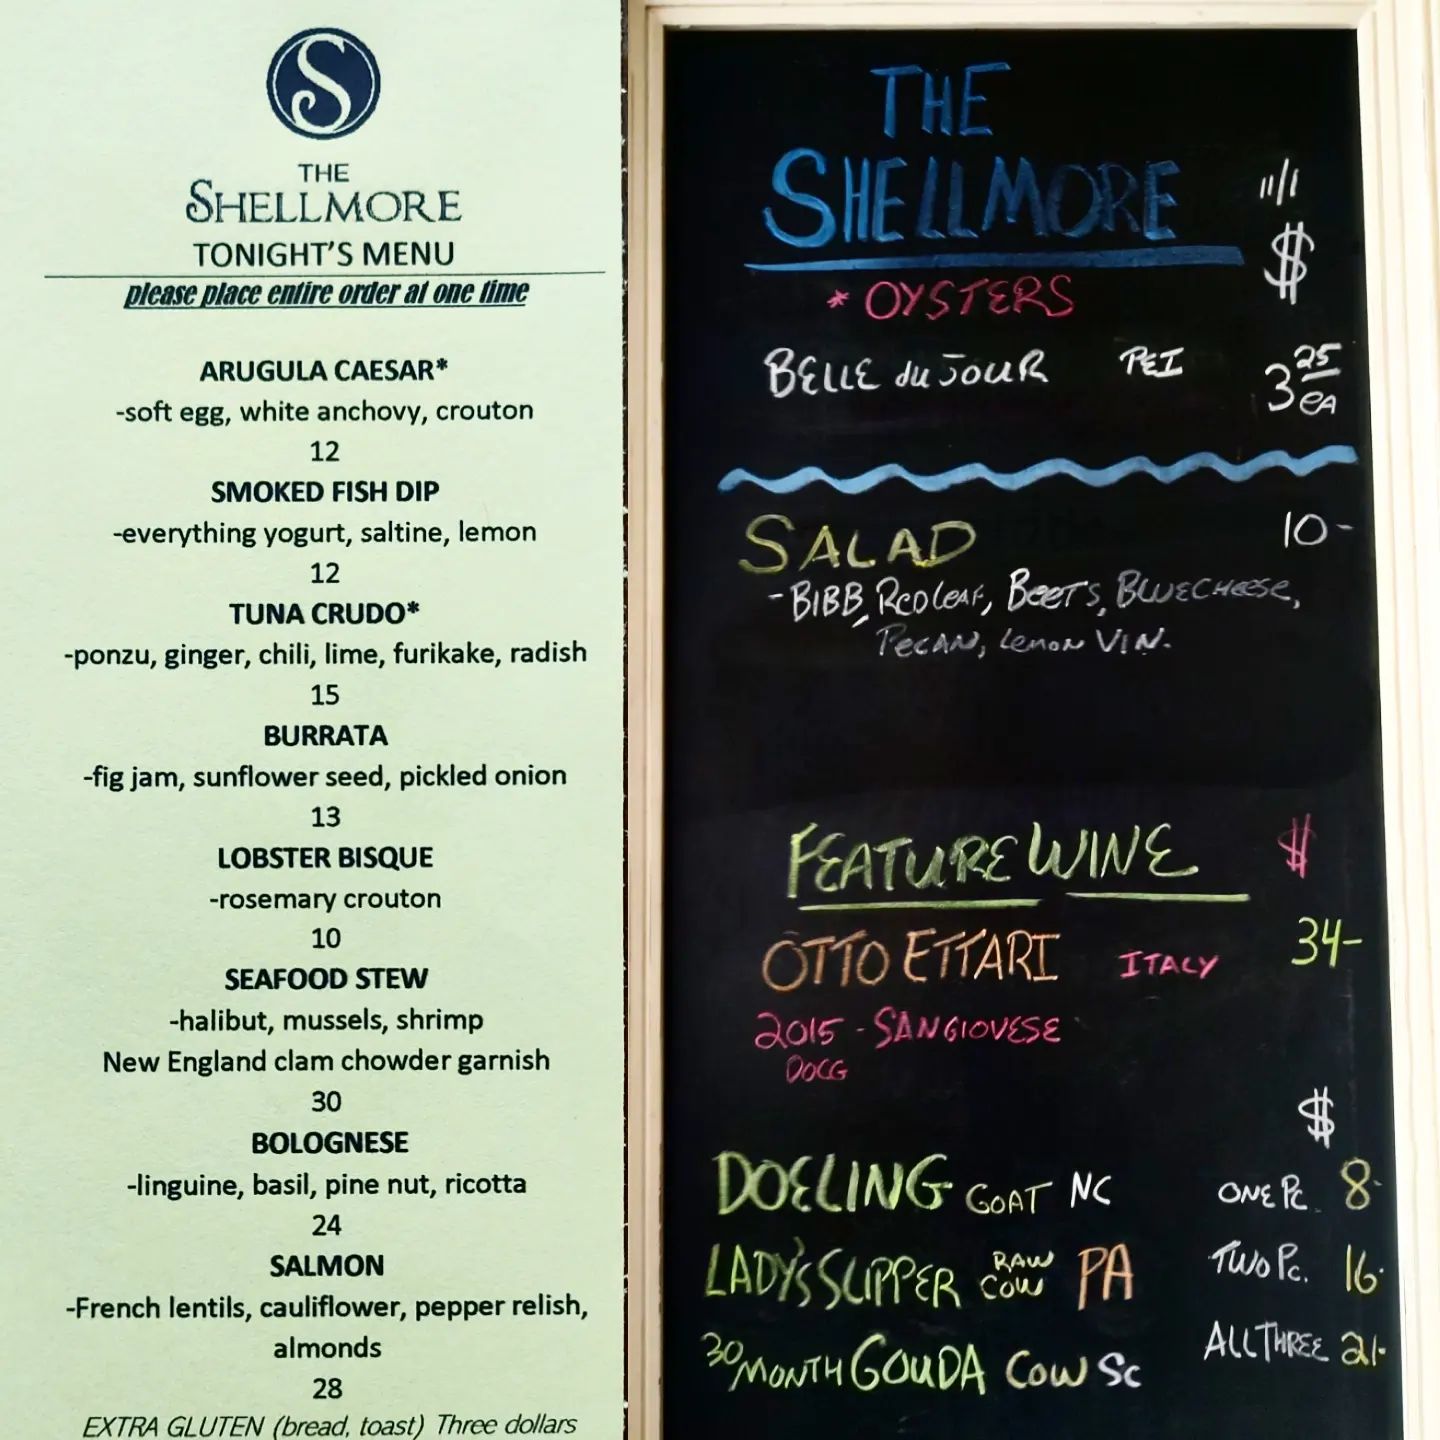 S
THE
SHELLMORE
TONIGHT'S MENU
please place entire order at one time
ARUGULA CAESAR*
-soft egg, white anchovy, crouton
12
SMOKED FISH DIP
-everything yogurt, saltine, lemon
12
TUNA CRUDO*
-ponzu, ginger, chili, lime, furikake, radish
15
BURRATA
-fig jam, sunflower seed, pickled onion
13
LOBSTER BISQUE
-rosemary crouton
10
SEAFOOD STEW
-halibut, mussels, shrimp
New England clam chowder garnish
30
BOLOGNESE
-linguine, basil, pine nut, ricotta
24
SALMON
-French lentils, cauliflower, pepper relish,
almonds
28
EXTRA GLUTEN (bread, toast) Three dollars
THE
SHELLMORE 11/1
$
* OYSTERS
BELLE du JOUR PEI 3 25 ea
SALAD 10-
- BIBB, Red Leaf, BEETS, BLUE CHEESE,
PECAN, Lemon VIN.
FEATURE WINE $
OTTO ETTARI ITALY 34-
2015 - SANGIOVESE
DOCG
$
DOELING GOAT NC ONE PC. 8-
LADY'S SLIPPER RAW COW PA TWO PC. 16-
30 MONTH GOUDA COW SC ALL THREE 21-